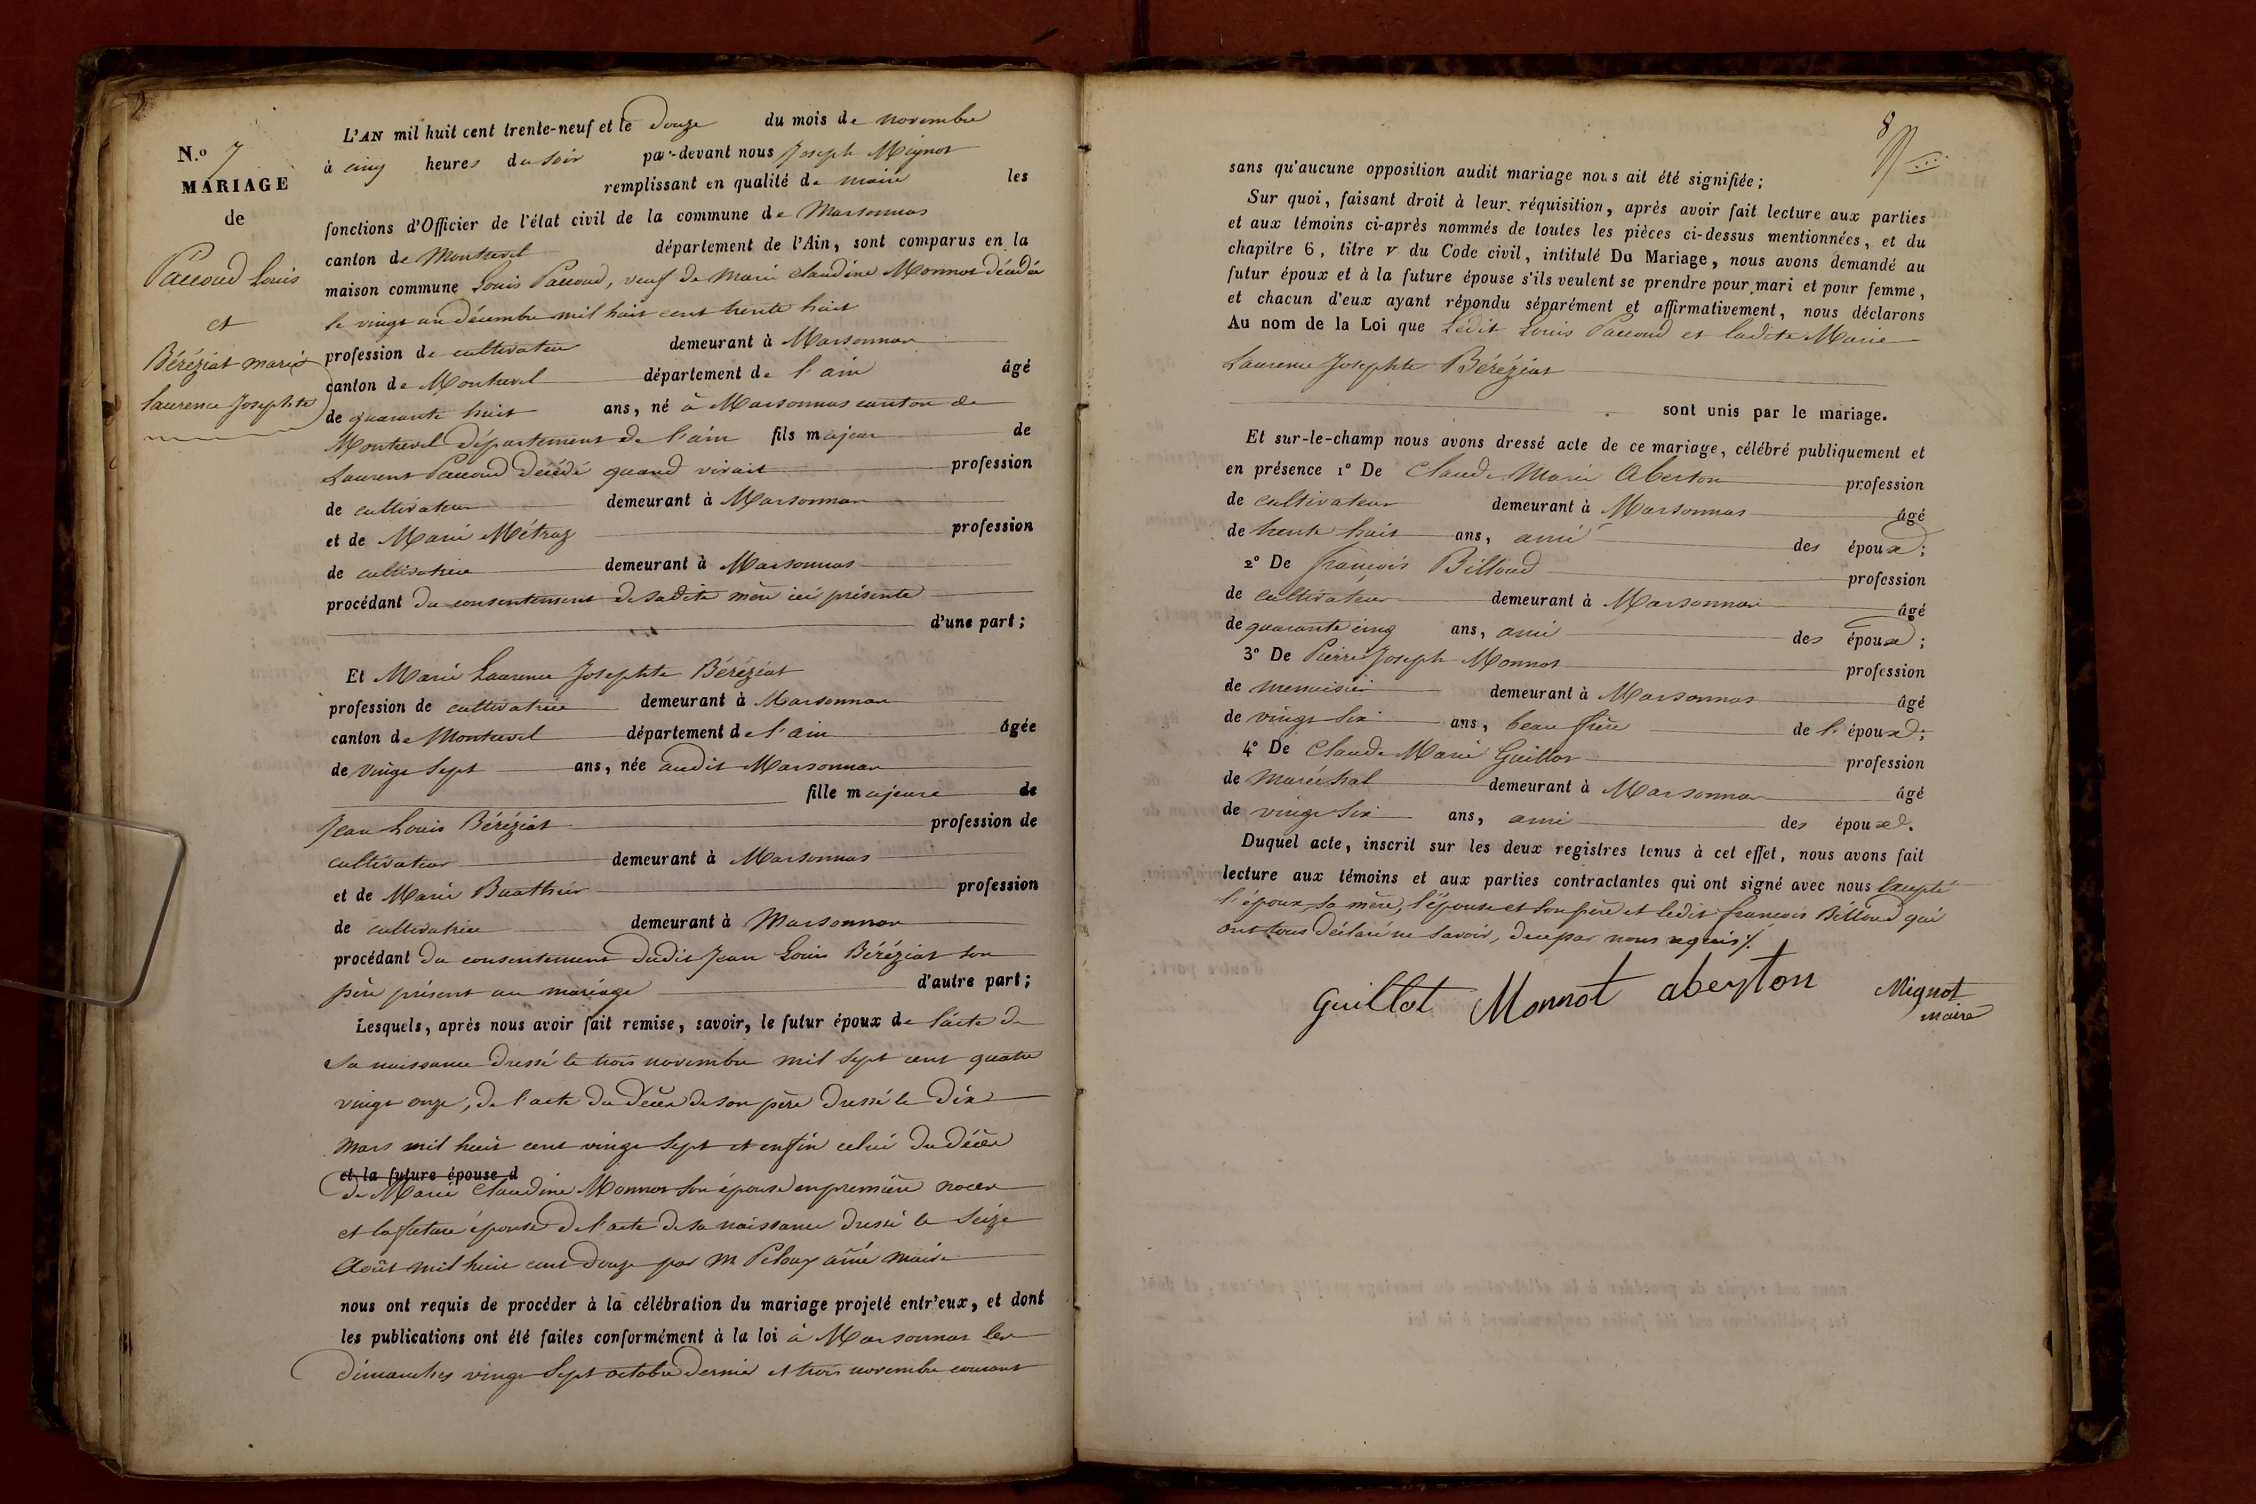 N.o 7
MARIAGE
de
Paccoud Louis
et
Béréziat marie
laurence Josephte
L'AN mil huit cent trente-neuf et le douze du mois de novembre
à cinq heures du soir par-devant nous Joseph Mignot
remplissant en qualité de maire les
fonctions d'Officier de l'état civil de la commune de Marsonnas
canton de Montrevel département de l'Ain, sont comparus en la
maison commune Louis Paccoud, veuf de Marie Claudine Monnot décédée
le vingt un décembre mil huit cent trente huit
profession de cultivateur demeurant à Marsonnas
canton de Montrevel département de l'ain âgé
de quarante huit ans, né à Marsonnas canton de
Montrevel département de l'ain fils majeur de
Laurent Paccoud décédé quand vivait profession
de cultivateur demeurant à Marsonnas
et de Marie Métraz profession
de cultivatrice demeurant à Marsonnas
procédant du consentement de sadite mère ici présente
d'une part;
Et Marie Laurence Josephte Béréziat
profession de cultivatrice demeurant à Marsonnas
canton de Montrevel département de l'ain âgée
de vingt sept ans, née audit Marsonnas
fille majeure de
Jean Louis Béréziat profession de
cultivateur demeurant à Marsonnas
et de Marie Buathier profession
de cultivatrice demeurant à Marsonnas
procédant du consentement dudit Jean Louis Béréziat son
père présent au mariage d'autre part;
Lesquels, après nous avoir fait remise, savoir, le futur époux de l'acte de
sa naissance dressé le trois novembre mil sept cent quatre
vingt onze, de l'acte du décès de son père dressé le dix
mars mil huit cent vingt sept et enfin celui du décès
et la future épouse d
de Marie Claudine Monnot son épouse en première noces
et la future épouse de l'acte de sa naissance dressé le seize
Août mil huit cent douze par M Peloux ainé maire
nous ont requis de procéder à la célébration du mariage projeté entr'eux, et dont
les publications ont été faites conformément à la loi à Marsonnas les
dimanches vingt sept octobre dernier et trois novembre courant
8
sans qu'aucune opposition audit mariage nous ait été signifiée;
Sur quoi, faisant droit à leur réquisition, après avoir fait lecture aux parties
et aux témoins ci-après nommés de toutes les pièces ci-dessus mentionnées, et du
chapitre 6, titre V du Code civil, intitulé Du Mariage, nous avons demandé au
futur époux et à la future épouse s'ils veulent se prendre pour mari et pour femme,
et chacun d'eux ayant répondu séparément et affirmativement, nous déclarons
Au nom de la Loi que Ledit Louis Paccoud et ladite Marie
Laurence Josephte Béréziat
sont unis par le mariage.
Et sur-le-champ nous avons dressé acte de ce mariage, célébré publiquement et
en présence 1o De Claude Marie Aberton profession
de cultivateur demeurant à Marsonnas âgé
de trente huit ans, ami des époux;
2o De François Billoud profession
de cultivateur demeurant à Marsonnas âgé
de quarante cinq ans, ami des époux;
3o De Pierre Joseph Monnot profession
de menuisier demeurant à Marsonnas âgé
de vingt six ans, beau frère de l'époux;
4o De Claude Marie Guillot profession
de Maréchal demeurant à Marsonnas âgé
de vingt six ans, ami des époux.
Duquel acte, inscrit sur les deux registres tenus à cet effet, nous avons fait
lecture aux témoins et aux parties contractantes qui ont signé avec nous Excepté
l'époux, sa mère, l'épouse et son père et ledit françois Billoud qui
ont tous déclaré ne savoir, de ce par nous requis ./.
Guillot Monnot abeyton Mignot
maire